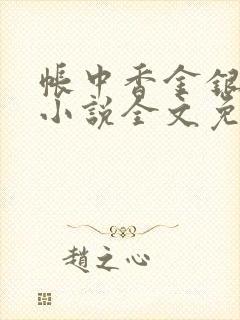 帳中香金銀
小說全文免
趙之心